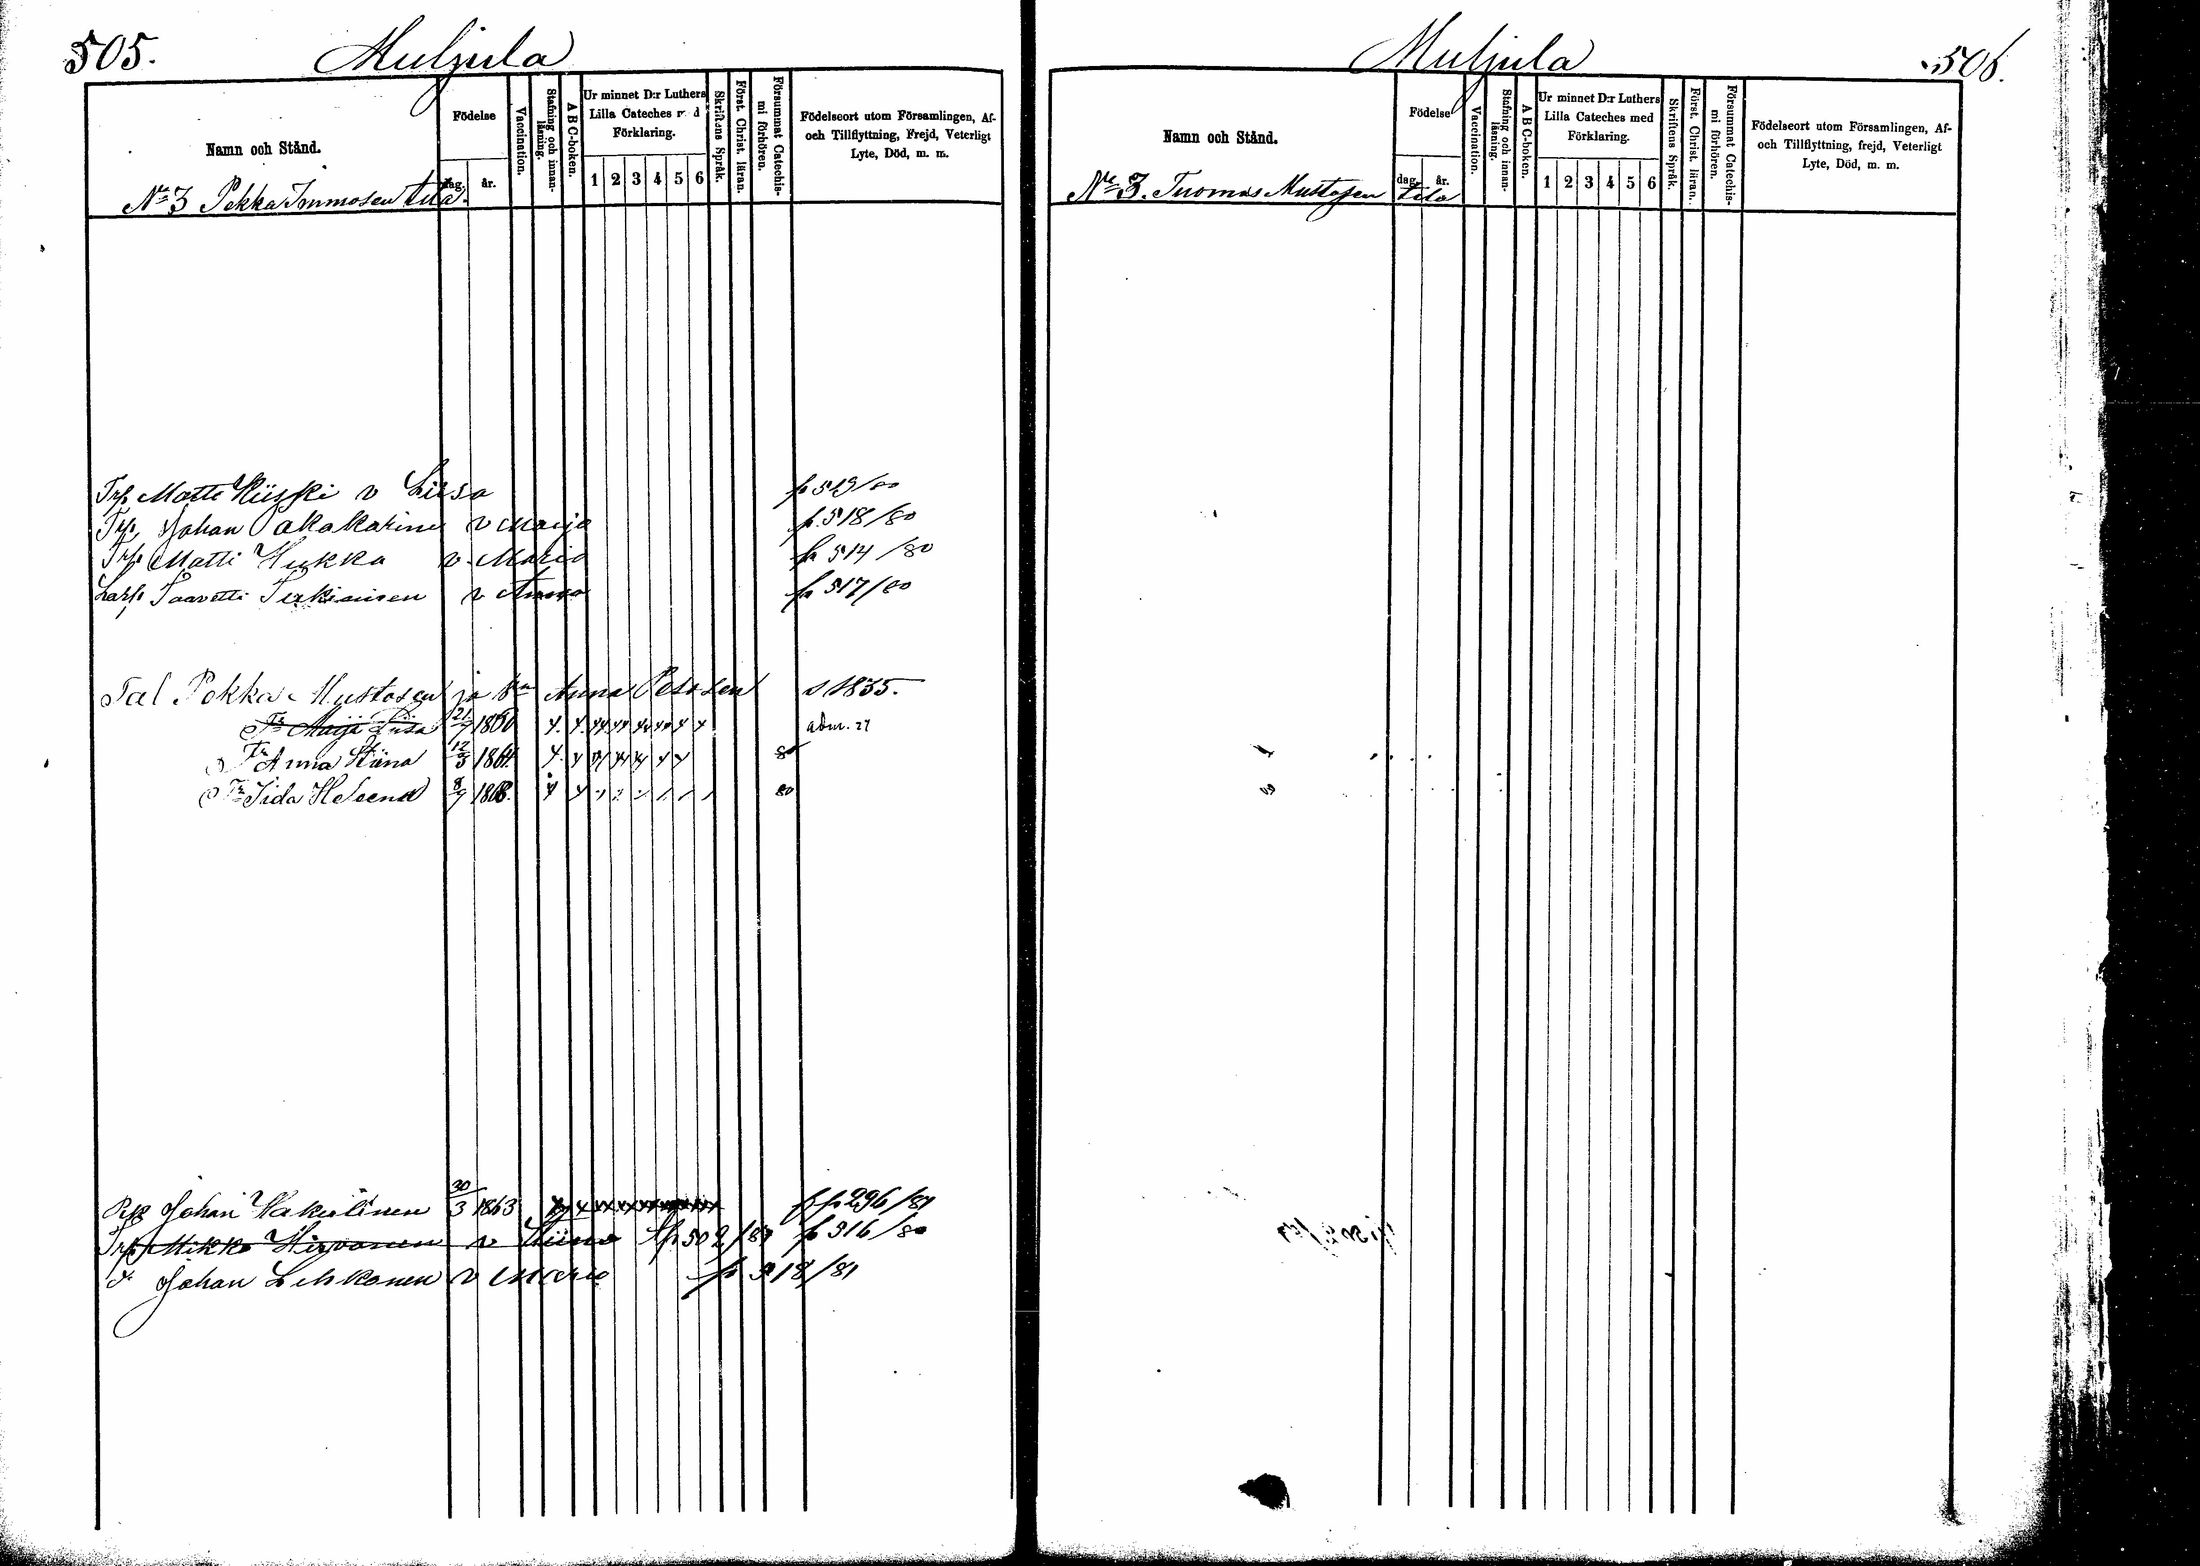 505. Muljula
Namn och Stånd.
Födelse
dag. år.
Vaccination.
Stafning och innanläsning.
A B C-boken.
Ur minnet D:r Luthers Lilla Cateches med Förklaring.
1 2 3 4 5 6
Skriftens Språk.
Först. Christ. läran.
Försummat Catechismi förhören.
Födelseort utom Församlingen, Af- och Tillflyttning, Frejd, Veterligt Lyte, Död, m. m.
No 3 Pekka Immosen tila.
Trp Matti Kiiski v Liisa fr 519/80
Trp Johan Pakarinen v Maija fr 518/80
Trp Matti Hukka v Maria fr 514/80
Paavetti v Anna fr 517/80
Tal Pekka Mustosen ja Vn Anna Pesosen s 1835.
Tr Maija Liisa 21/7 1860 adm. 27
Tr Anna Stiina 12/3 1864 80
Tr Iida Heleena 8/7 1868. 80
Johan 30/3 1863 fr p 296/81
Trp Mikko Hirvonen v Stiina tp 502/81 fr 316/80
Johan Lehkonen v Maria fr 318/81
Muljula 506.
Namn och Stånd.
Födelse
dag. år.
Vaccination.
Stafning och innanläsning.
A B C-boken.
Ur minnet D:r Luthers Lilla Cateches med Förklaring.
1 2 3 4 5 6
Skriftens Språk.
Först. Christ. läran.
Försummat Catechismi förhören.
Födelseort utom Församlingen, Af- och Tillflyttning, frejd, Veterligt Lyte, Död, m. m.
No 3. Tuomas Mustosen tila